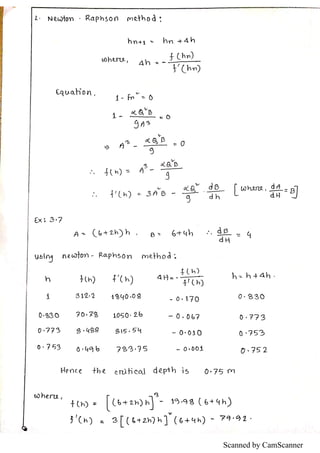 2. Newton - Raphson method :
hn+1 = hn + Δh
where, Δh = - f(hn) / f'(hn)
Equation,
1 - Fr² = 0
1 - αQ²B / gA³ = 0
⇒ A³ - αQ²B / g = 0
∴ f(h) = A³ - αQ²B / g
∴ f'(h) = 3A²B - αQ²/g · dB/dh [ where, dA/dH = B ]
Ex: 3.7
A = (6+2h)h , B = 6+4h ∴ dB/dH = 4
using newton - Raphson method :
h f(h) f'(h) ΔH = - f(h)/f'(h) h = h + Δh.
1 312.2 1840.08 - 0.170 0.830
0.830 70.78 1050.26 - 0.067 0.773
0.773 8.488 815.54 - 0.010 0.753
0.753 0.496 783.75 - 0.001 0.752
Hence the critical depth is 0.75 m
where,
f(h) = [(6+2h)h]³ - 19.98 (6+4h)
f'(h) = 3[(6+2h)h]² (6+4h) - 79.92.
Scanned by CamScanner